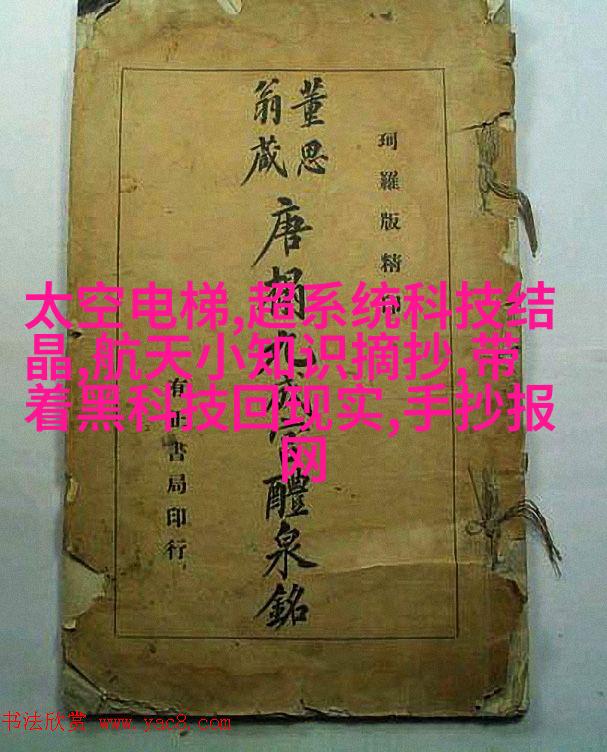 珂羅版精
董思
翁藏
唐搨宮醴泉銘
有正書局印行
太空电梯,超系统科技结
晶,航天小知识摘抄,带
着黑科技回现实,手抄报
网
书法欣赏 www.yac8.com